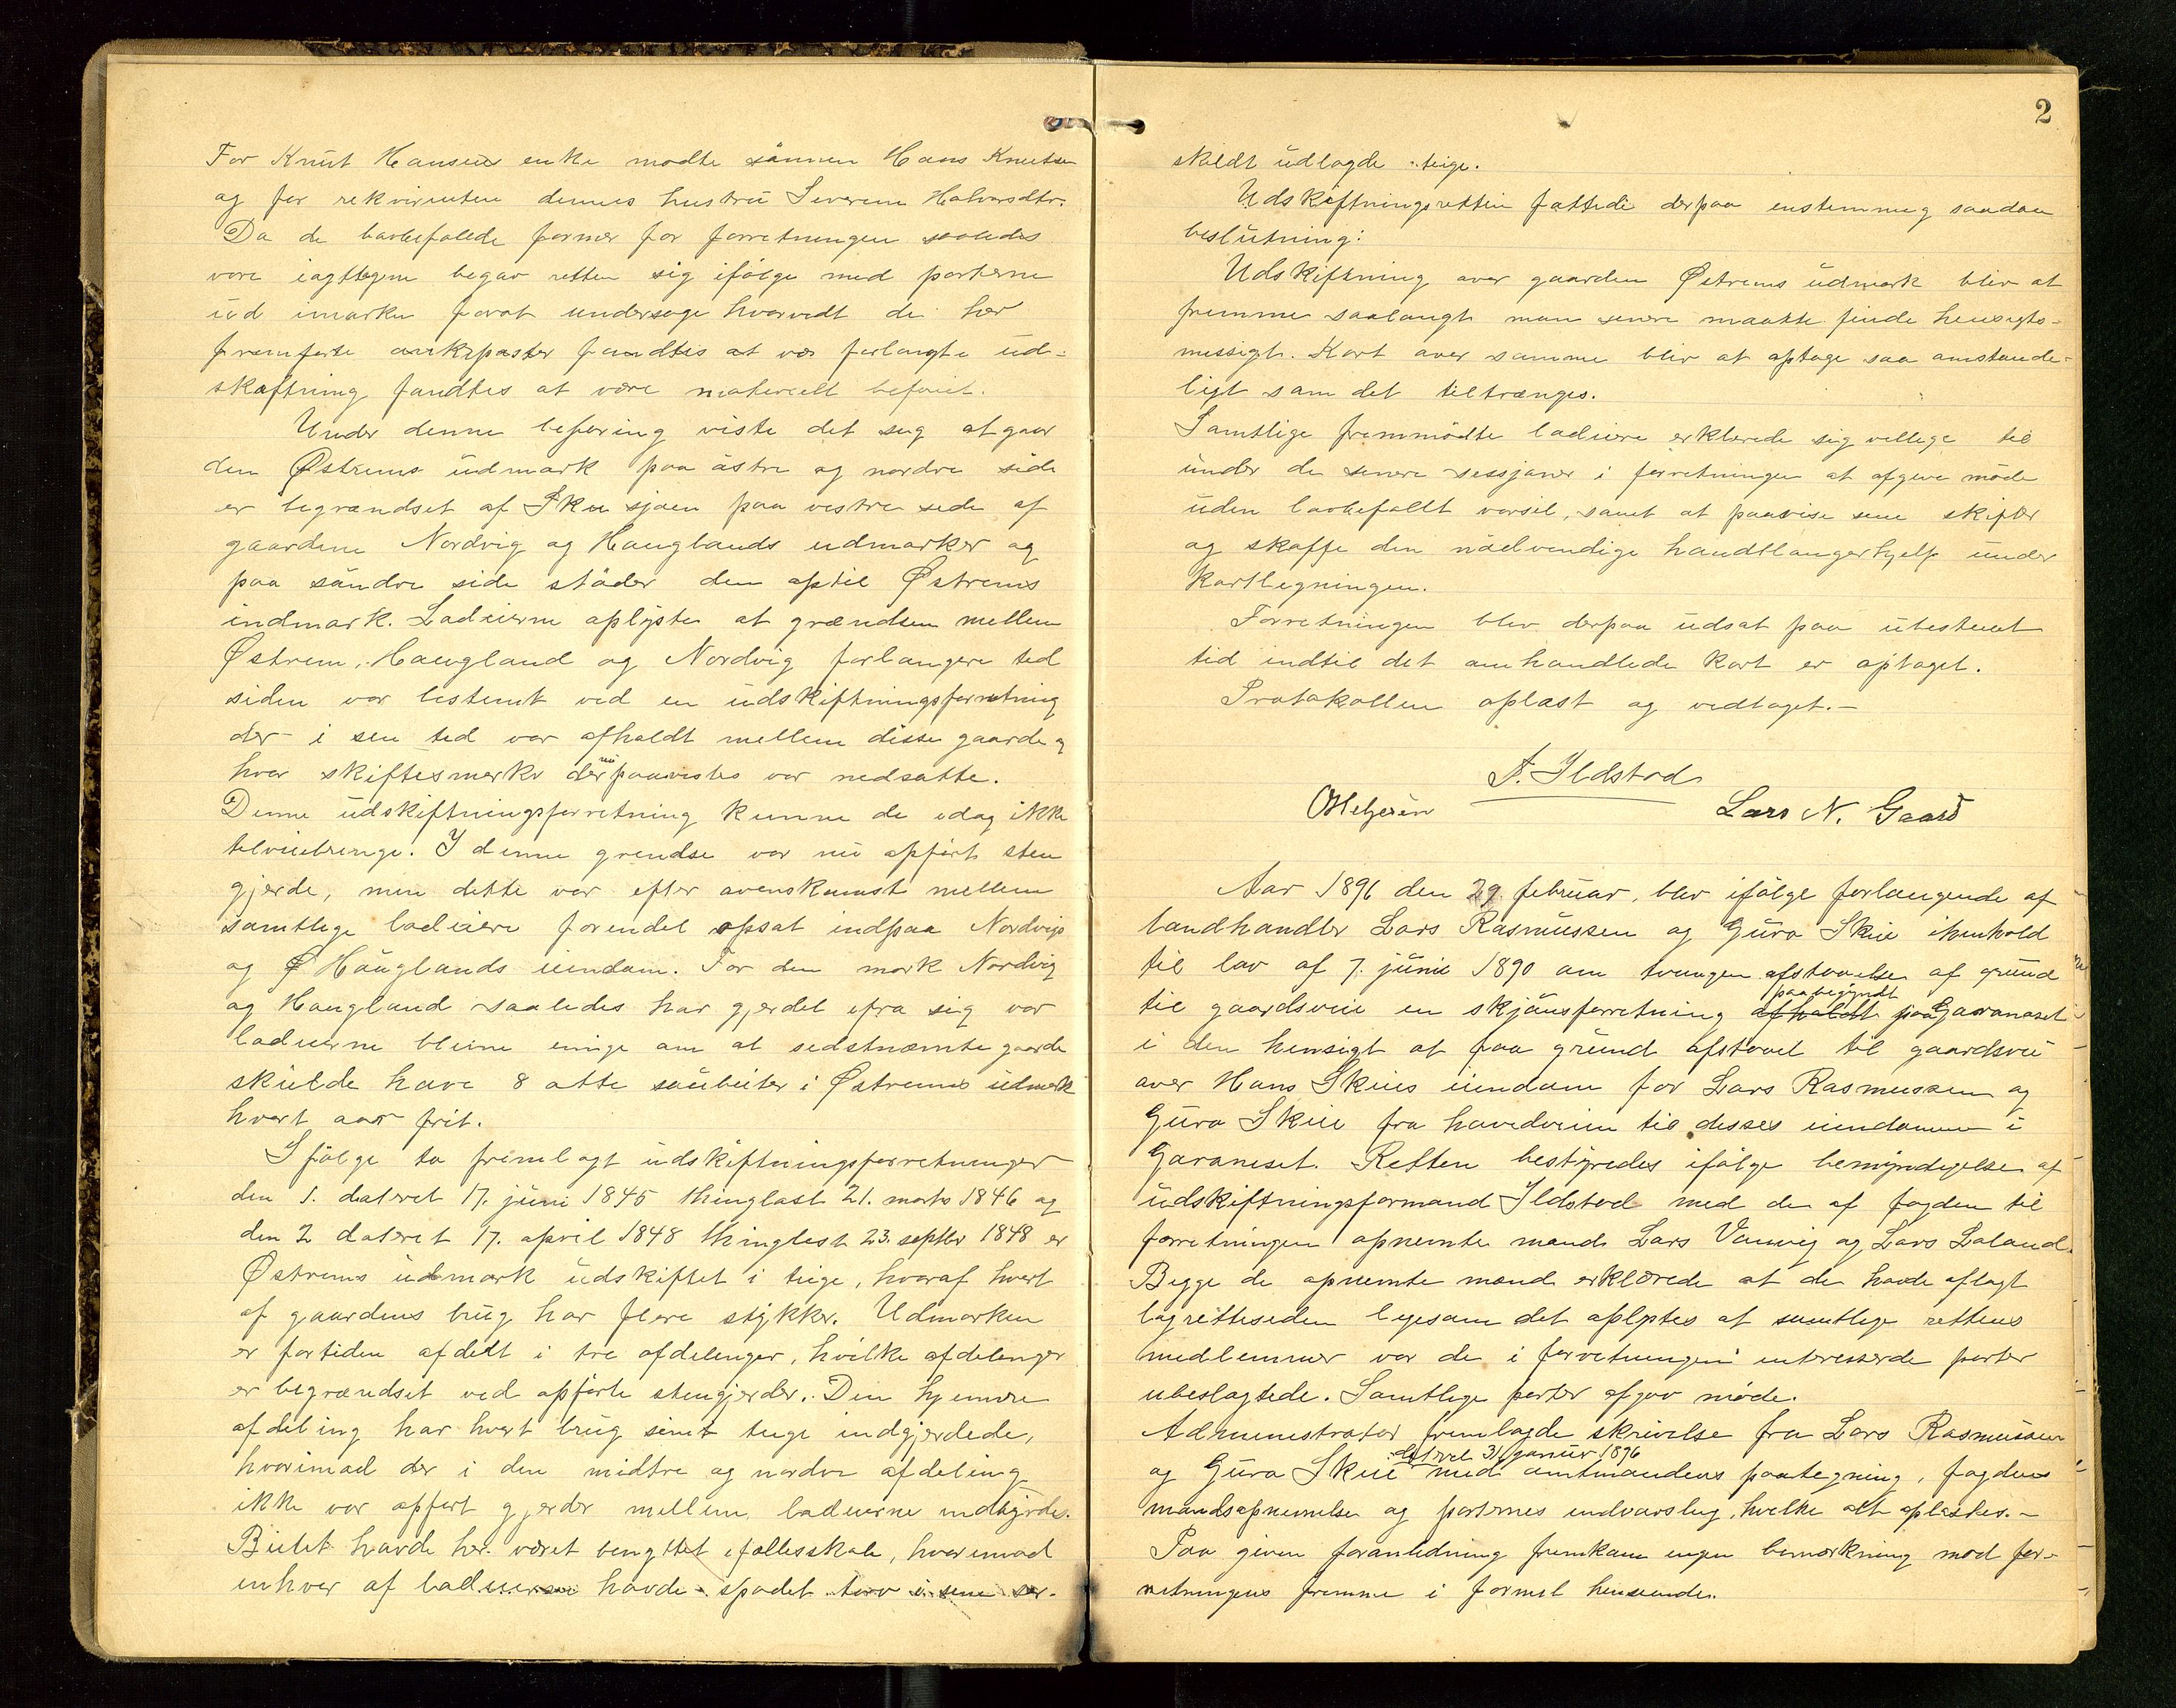 For Knut Hansens enke mødte sønnen Hans Knutsen
og for rekvirenten dennes hustru Severine Halvorsdtr.
Da de lovbefalede former for forretningen saaledes
vare iagttagne begav retten sig ifølge med parterne
ud i marken forat undersøge hvorvidt de her
fremførte ankeposter fandtes at var forlangte ud-
skiftning fandtes at være materielt beføiet.
Under denne befaring viste det sig at gaar
den Østrems udmark paa østre og nordre side
er begrændset af Skusjøen paa vestre side af
gaardene Nordvig og Hauglands udmarker og
paa søndre side støder den optil Østrems
indmark. Lodeierne oplyste at grændsen mellem
Østrem, Haugland og Nordvig for længere tid
siden var bestemt ved en udskiftningsforretning
der i sin tid var afholdt mellem disse gaarde og
hvor skiftesmerker der nu paavistes var nedsatte.
Denne udskiftningsforretning kunne de idag ikke
tilveiebringe. I denne grendse var nu opført sten
gjerde, men dette var efter overenskomst mellem
samtlige lodeiere forendel opsat indpaa Nordvigs
og Ø Hauglands eiendom. For den mark Nordvig
og Haugland saaledes har gjerdet ifra sig var
lodeierne blevne enige om at sidstnæmte gaarde
skulde have 8 otte saubeiter i Østrems udmark
hvert aar frit.
Ifølge to fremlagt udskiftningsforretninger
den 1. dateret 17. juni 1845 thinglæst 21. marts 1846 og
den 2 dateret 17. april 1848 thinglest 23. septbr 1848 er
Østrems udmark udskiftet i teige, hvoraf hvert
af gaardens brug har flere stykker. Udmarken
er fortiden afdelt i tre afdelinger, hvilke afdelinger
er begrændset ved opførte stengjerder. Den hjemre
afdeling har hvert brug sine teige indgjerdede,
hvorimod der i den midtre og nordre afdeling
ikke var opført gjerder mellem lodeierne indbyrdes.
Beitet havde her været benyttet ifællesskab, hvorimod
enhver af lodeierne havde spadet torv i sine sær-
2
skildt udlagde teige.
Udskiftningsretten fattede derpaa enstemmig saadan
beslutning:
Udskiftning over gaarden Østrems udmark blir at
fremme saalangt man senere maatte finde hensigts-
messigt. Kart over samme blir at optage saa omstænde-
ligt som det tiltrænges.
Samtlige fremmødte lodeiere erklerede sig villige til
under de senere sessjoner i forretningen at afgive møde
uden lovbefallt varsel, samt at paavise sine skifter
og skaffe den nødvendige haandtlangerhjelp under
kartlegningen.
Forretningen blev derpaa udsat paa ubestemt
tid indtil det omhandlede kart er optaget.
Protokollen oplæst og vedtaget.-
F. Ildstad
Lars N. Gaard
Aar 1896 den 29. februar, blev ifølge forlangende af
landhandler Lars Rasmussen og Guro Skeie i henhold
til lov af 7. juni 1890 om tvungen afstaaelse af grund
til gaardsveie en skjønsforretning afholdt paabegyndt paa Garanæset
i den hensigt at faa grund afstaaet til gaardsvei
over Hans Skeies eiendom for Lars Rasmussen og
Guro Skeie fra hovedveien til disses eiendomme i
Garaneset. Retten bestyredes ifølge bemyndigelse af
udskiftningsformand Ildstad med de af fogden til
forretningen opnemte mænd Lars Vanvig og Lars Laland.
Begge de opnemte mænd erklærede at de havde aflagt
lagretteseden ligesom det oplystes at samtlige rettens
medlemmer var de i forretningen interesserede parter
ubeslægtede. Samtlige parter afgav møde.
Administrator fremlagde skrivelse fra Lars Rasmussen
og Guro Skeie dateret 31 januar 1896 med amtmandens paategning, fogdens
mandsopnevnelse og parternes indvarsling, hvilke alt oplæstes.-
Paa given foranledning fremkom ingen bemærkning mod for-
retningens fremme i formel henseende.